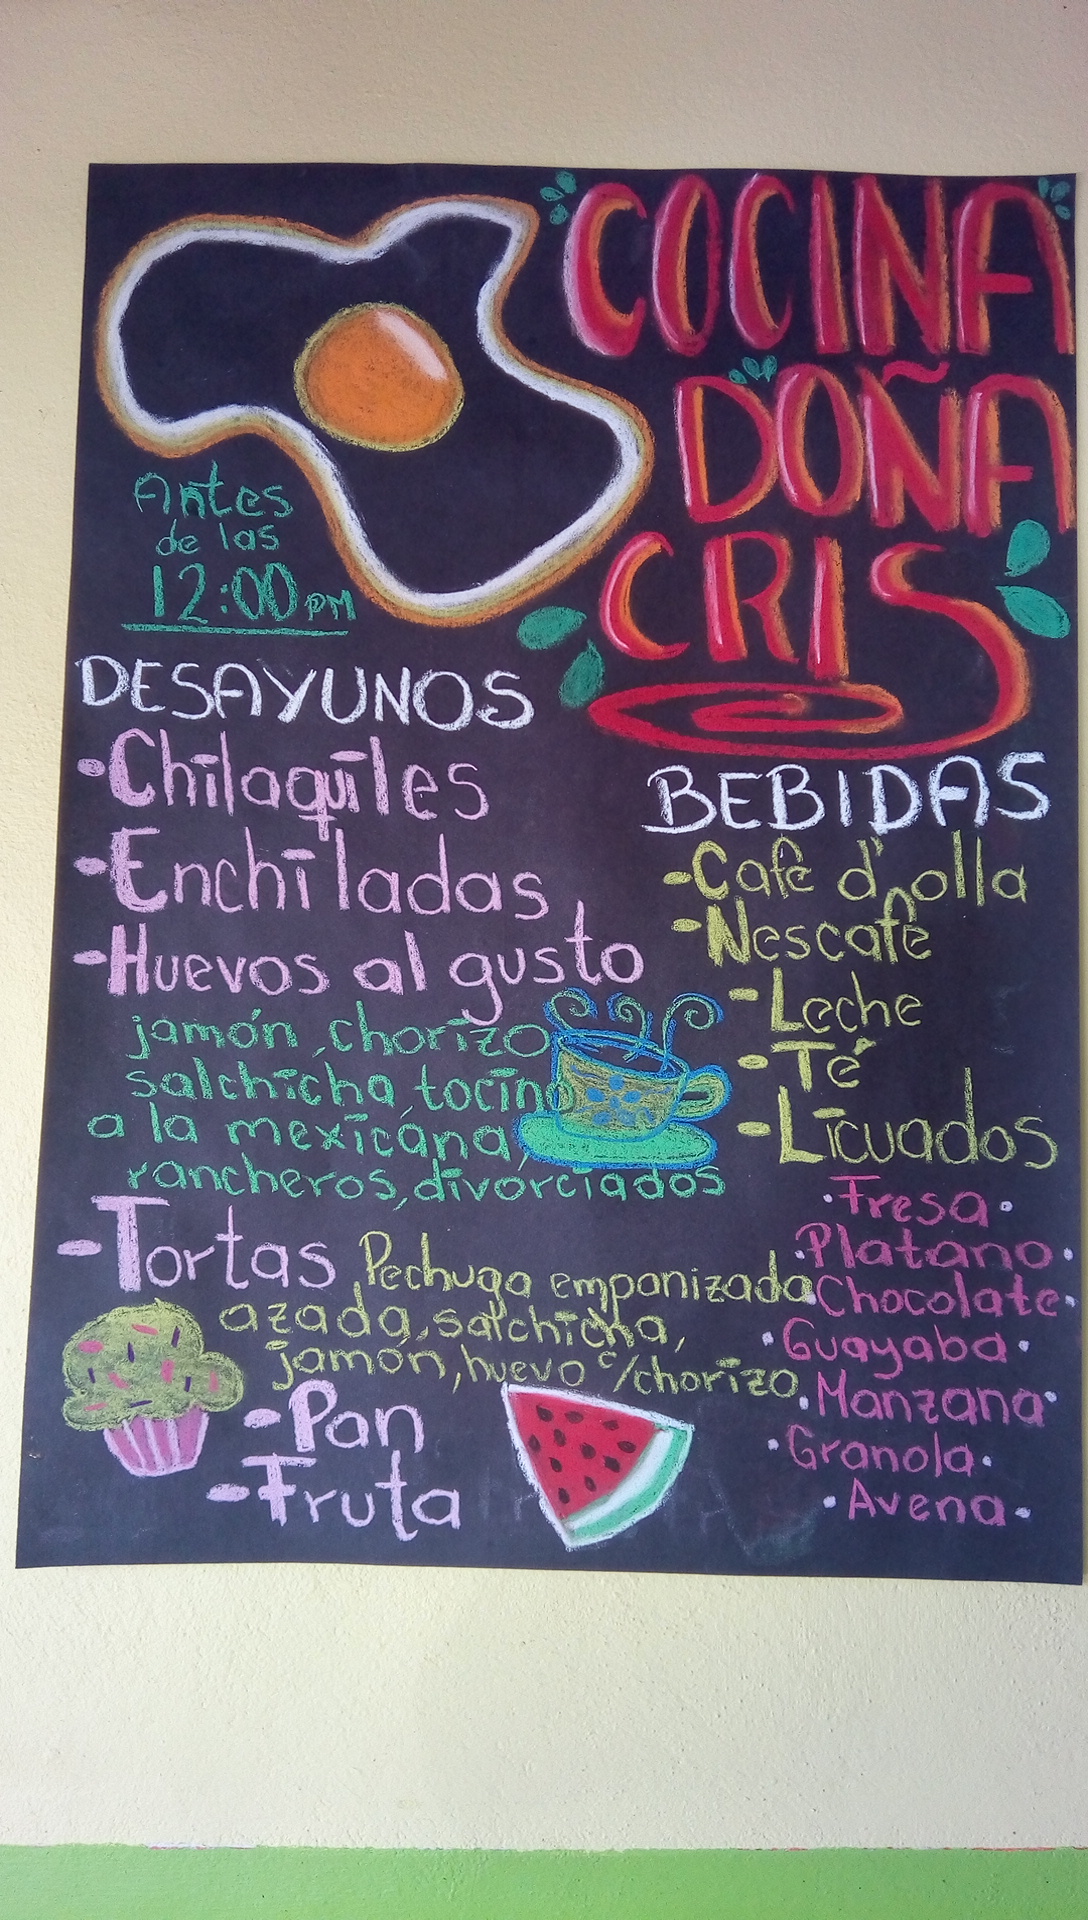 COCINA
DOÑA
CRIS
Antes
de las
12:00 PM
DESAYUNOS
-Chilaquiles
-Enchiladas
-Huevos al gusto
jamón, chorizo
salchicha, tocino
a la mexicana,
rancheros, divorciados
-Tortas Pechuga empanizada
azada, salchicha,
jamón, huevo c/chorizo
-Pan
-Fruta
BEBIDAS
-Café d' olla
-Nescafé
-Leche
-Té
-Licuados
·Fresa·
·Platano·
·Chocolate·
·Guayaba·
·Manzana·
·Granola·
·Avena·